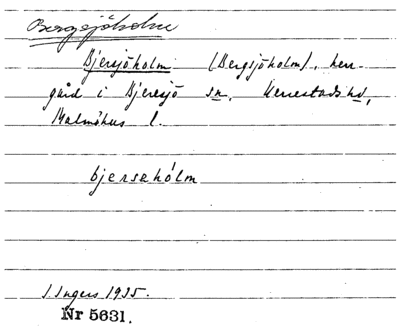 Bergsjöholm
Bjersjöholm (Bergsjöholm), herr-
gård i Bjeresjö sn, Herrestads hd,
Malmöhus l.
bjersəhólm
I. Ingers 1935.
Nr 5631.